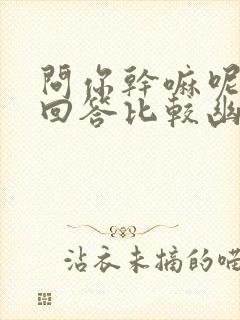 問你幹嘛呢
回答比較幽
沾衣未摘的喵